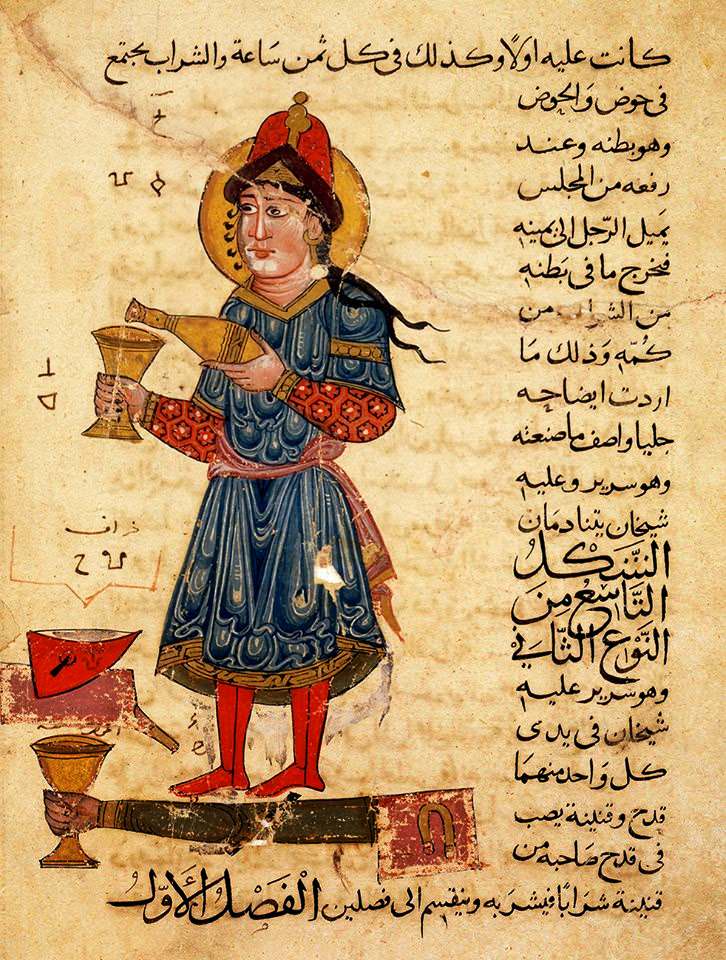 كانت عليه اولًا وكذلك في كل ثمن ساعة والشراب يجتمع
في حوض والحوض
وهو بطنه وعند
رفعه من المجلس
يميل الرّجل الى يمينه
فيخرج ما في بطنه
من الشراب من
كُمّه وَذلك مَا
اردت ايضاحه
جليا واصف ما صنعته
وهو سرير وعليه
شيخان يتنادمَان
الشّكل
التّاسِع مِنَ
النّوع الثّاني
وهو سرير عليه
شيخان في يدى
كل وَاحد منهمَا
قدح وقنينة يصب
في قدح صَاحبه من
قنينة شرَابًا فيشرَبه وينقسم الى فصلين الفَصْل الأوّل